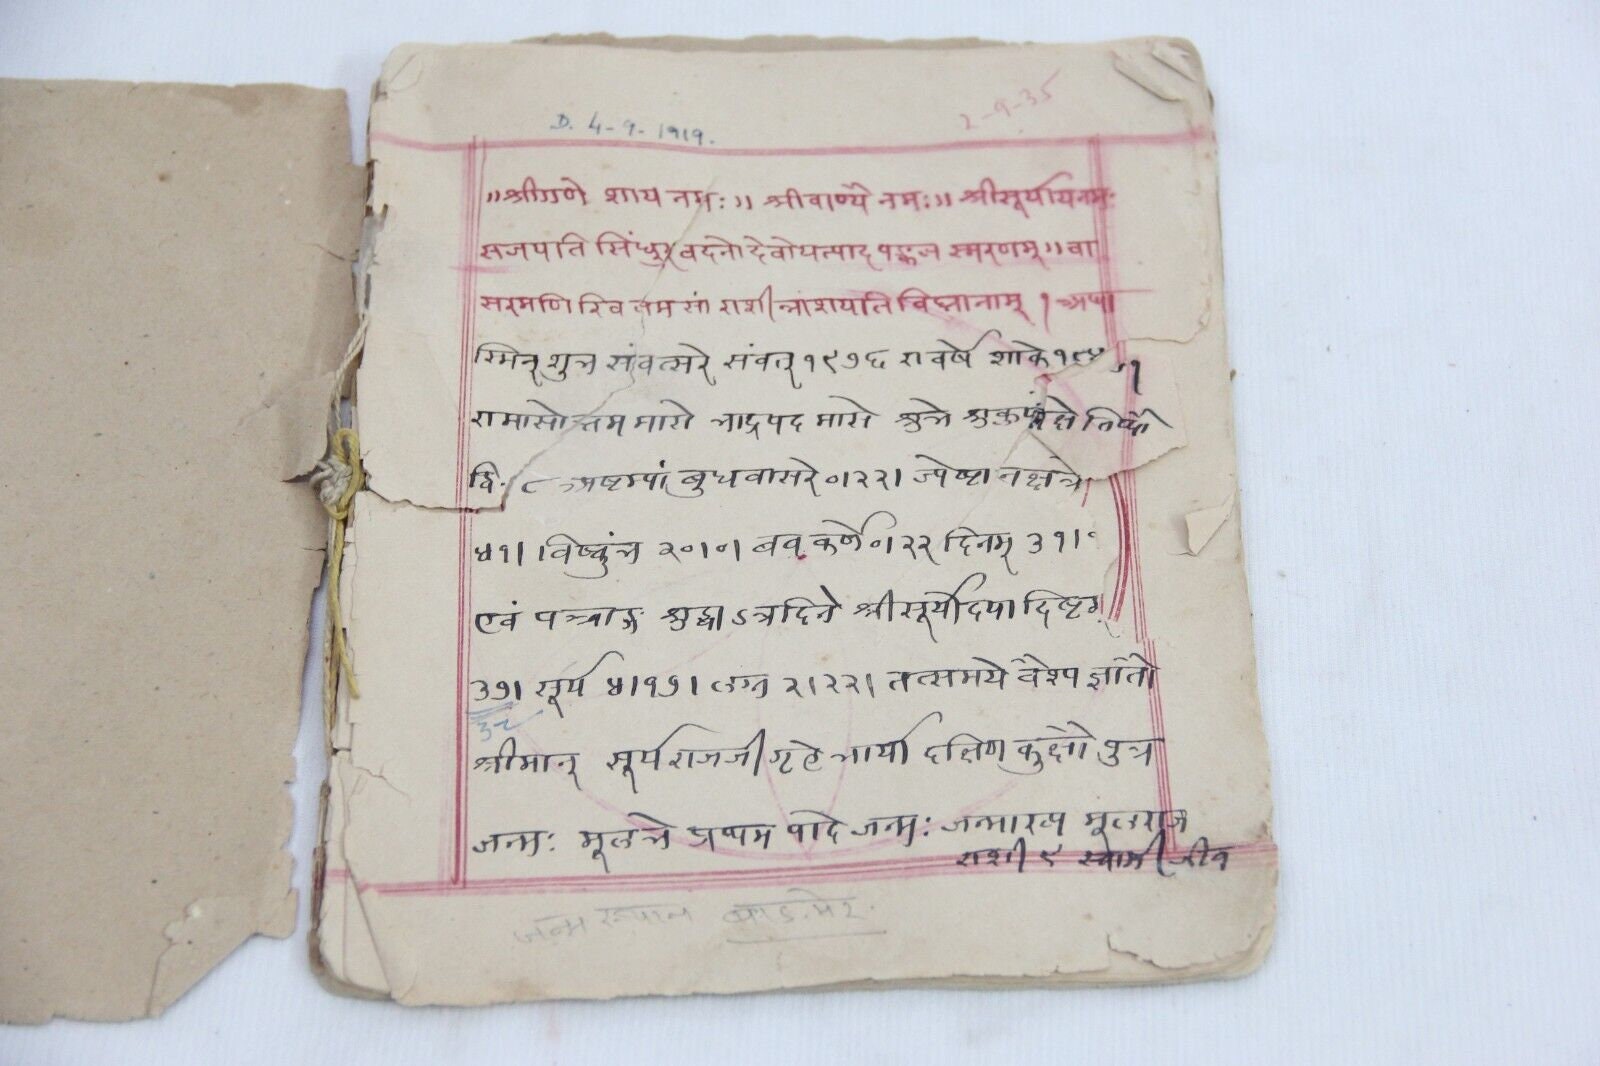 D. 4-9-1919.
2-9-35
॥श्रीगणे शाय नमः॥ श्रीवाण्यै नमः॥ श्रीसूर्यायनमः
सजपति सिंधुर वदनो देवोयत्पाद पङ्कज स्मरणम्॥ वा
सरमणि रिव तम सां राशीन्नाशयति विघ्नानाम्। अथा
स्मिन् शुभ संवत्सरे संवत् १९७६ रा वर्षे शाके
रा मासोत्तम मासे भाद्रपद मासे शुभे शुक्लपक्षे तिथौ
द्वि. ८ अष्टम्यां बुधवासरे ०।२२। ज्येष्टा नक्षत्रे
४१। विष्कुंभ २०।०। बव कर्णे ०।२२ दिनम् ३१।०
एवं पञ्चाङ्ग शुद्धा ऽत्रदिने श्रीसूर्योदयादिष्टम्
३७। सूर्य ४।१७। लग्न २।२२। तत्समये वैश्य ज्ञातौ
३२
श्रीमान् सूर्यराजजी गृहे भार्या दक्षिण कुक्षौ पुत्र
जन्मः मूलभे प्रथम पादे जन्मः जन्माख्य मूलराज
राशी ९ स्वामी जीव
जन्म स्थान बाडमेर.